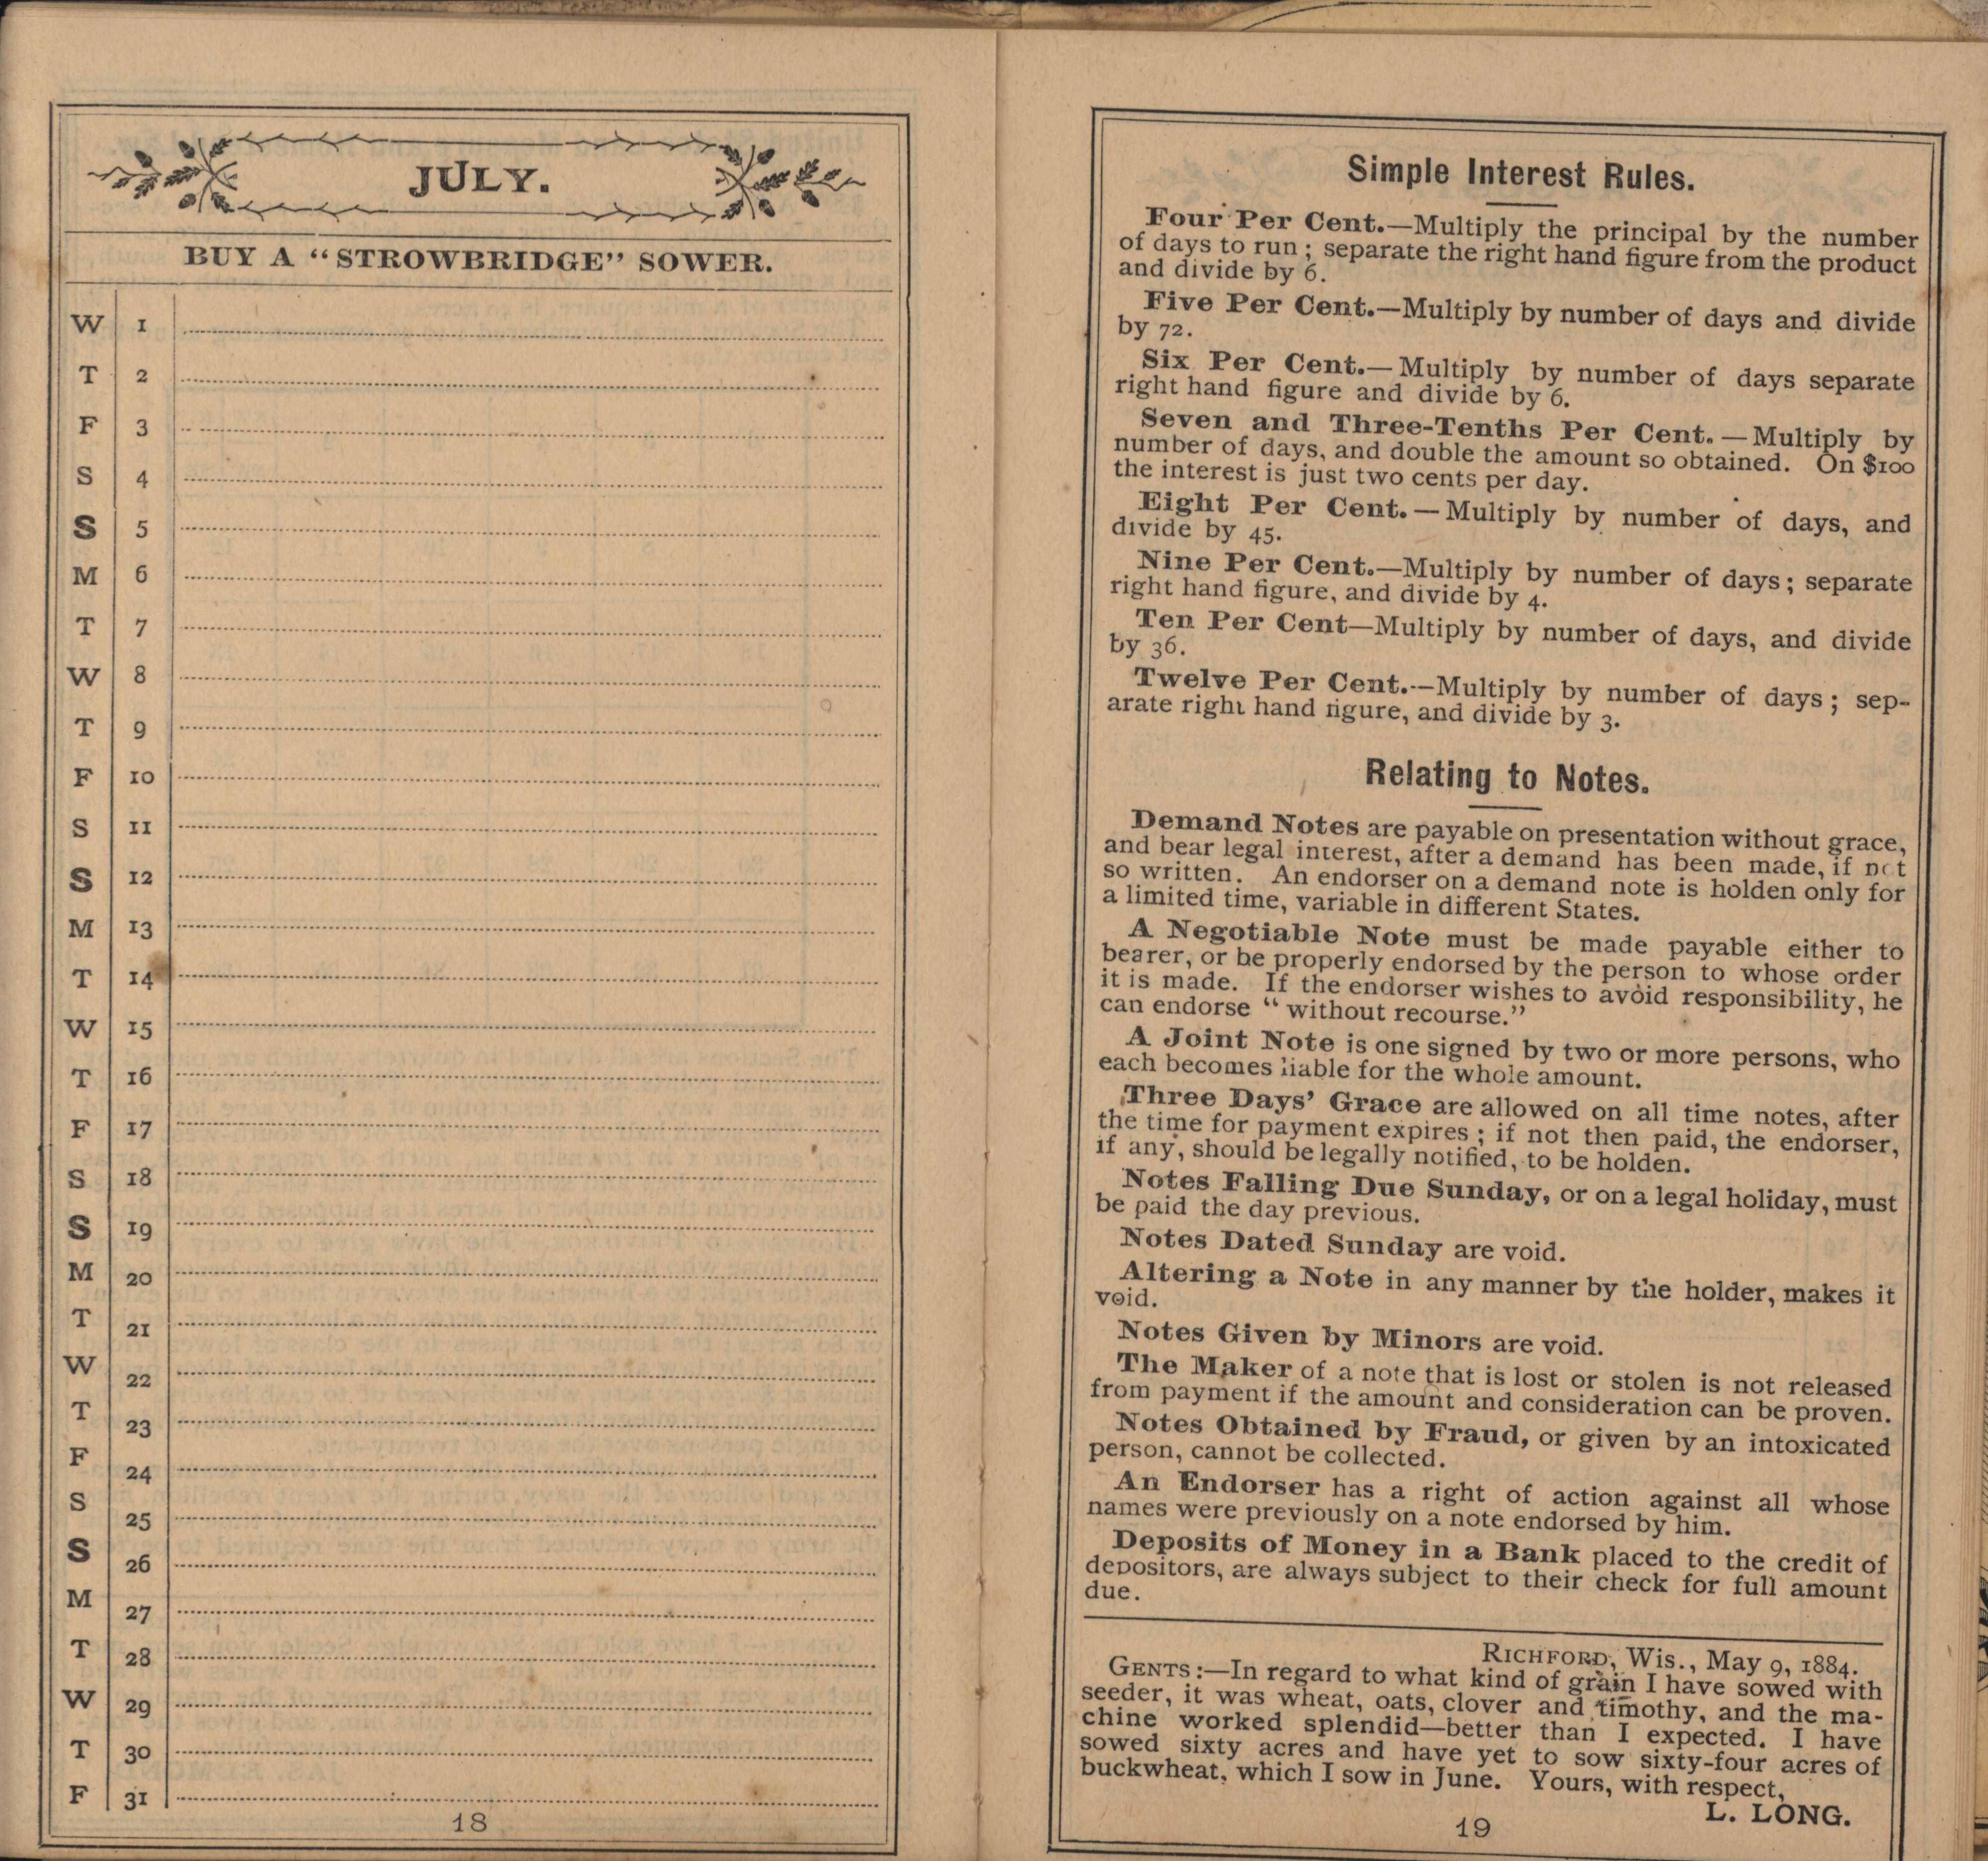 JULY.
BUY A “STROWBRIDGE” SOWER.
W 1
T 2
F 3
S 4
S 5
M 6
T 7
W 8
T 9
F 10
S 11
S 12
M 13
T 14
W 15
T 16
F 17
S 18
S 19
M 20
T 21
W 22
T 23
F 24
S 25
S 26
M 27
T 28
W 29
T 30
F 31
18
Simple Interest Rules.
Four Per Cent.—Multiply the principal by the number
of days to run; separate the right hand figure from the product
and divide by 6.
Five Per Cent.—Multiply by number of days and divide
by 72.
Six Per Cent.—Multiply by number of days separate
right hand figure and divide by 6.
Seven and Three-Tenths Per Cent.—Multiply by
number of days, and double the amount so obtained. On $100
the interest is just two cents per day.
Eight Per Cent.—Multiply by number of days, and
divide by 45.
Nine Per Cent.—Multiply by number of days; separate
right hand figure, and divide by 4.
Ten Per Cent—Multiply by number of days, and divide
by 36.
Twelve Per Cent.—Multiply by number of days; sep-
arate right hand figure, and divide by 3.
Relating to Notes.
Demand Notes are payable on presentation without grace,
and bear legal interest, after a demand has been made, if not
so written. An endorser on a demand note is holden only for
a limited time, variable in different States.
A Negotiable Note must be made payable either to
bearer, or be properly endorsed by the person to whose order
it is made. If the endorser wishes to avoid responsibility, he
can endorse “without recourse.”
A Joint Note is one signed by two or more persons, who
each becomes liable for the whole amount.
Three Days’ Grace are allowed on all time notes, after
the time for payment expires; if not then paid, the endorser,
if any, should be legally notified, to be holden.
Notes Falling Due Sunday, or on a legal holiday, must
be paid the day previous.
Notes Dated Sunday are void.
Altering a Note in any manner by the holder, makes it
void.
Notes Given by Minors are void.
The Maker of a note that is lost or stolen is not released
from payment if the amount and consideration can be proven.
Notes Obtained by Fraud, or given by an intoxicated
person, cannot be collected.
An Endorser has a right of action against all whose
names were previously on a note endorsed by him.
Deposits of Money in a Bank placed to the credit of
depositors, are always subject to their check for full amount
due.
RICHFORD, Wis., May 9, 1884.
GENTS:—In regard to what kind of grain I have sowed with
seeder, it was wheat, oats, clover and timothy, and the ma-
chine worked splendid—better than I expected. I have
sowed sixty acres and have yet to sow sixty-four acres of
buckwheat, which I sow in June. Yours, with respect,
L. LONG.
19